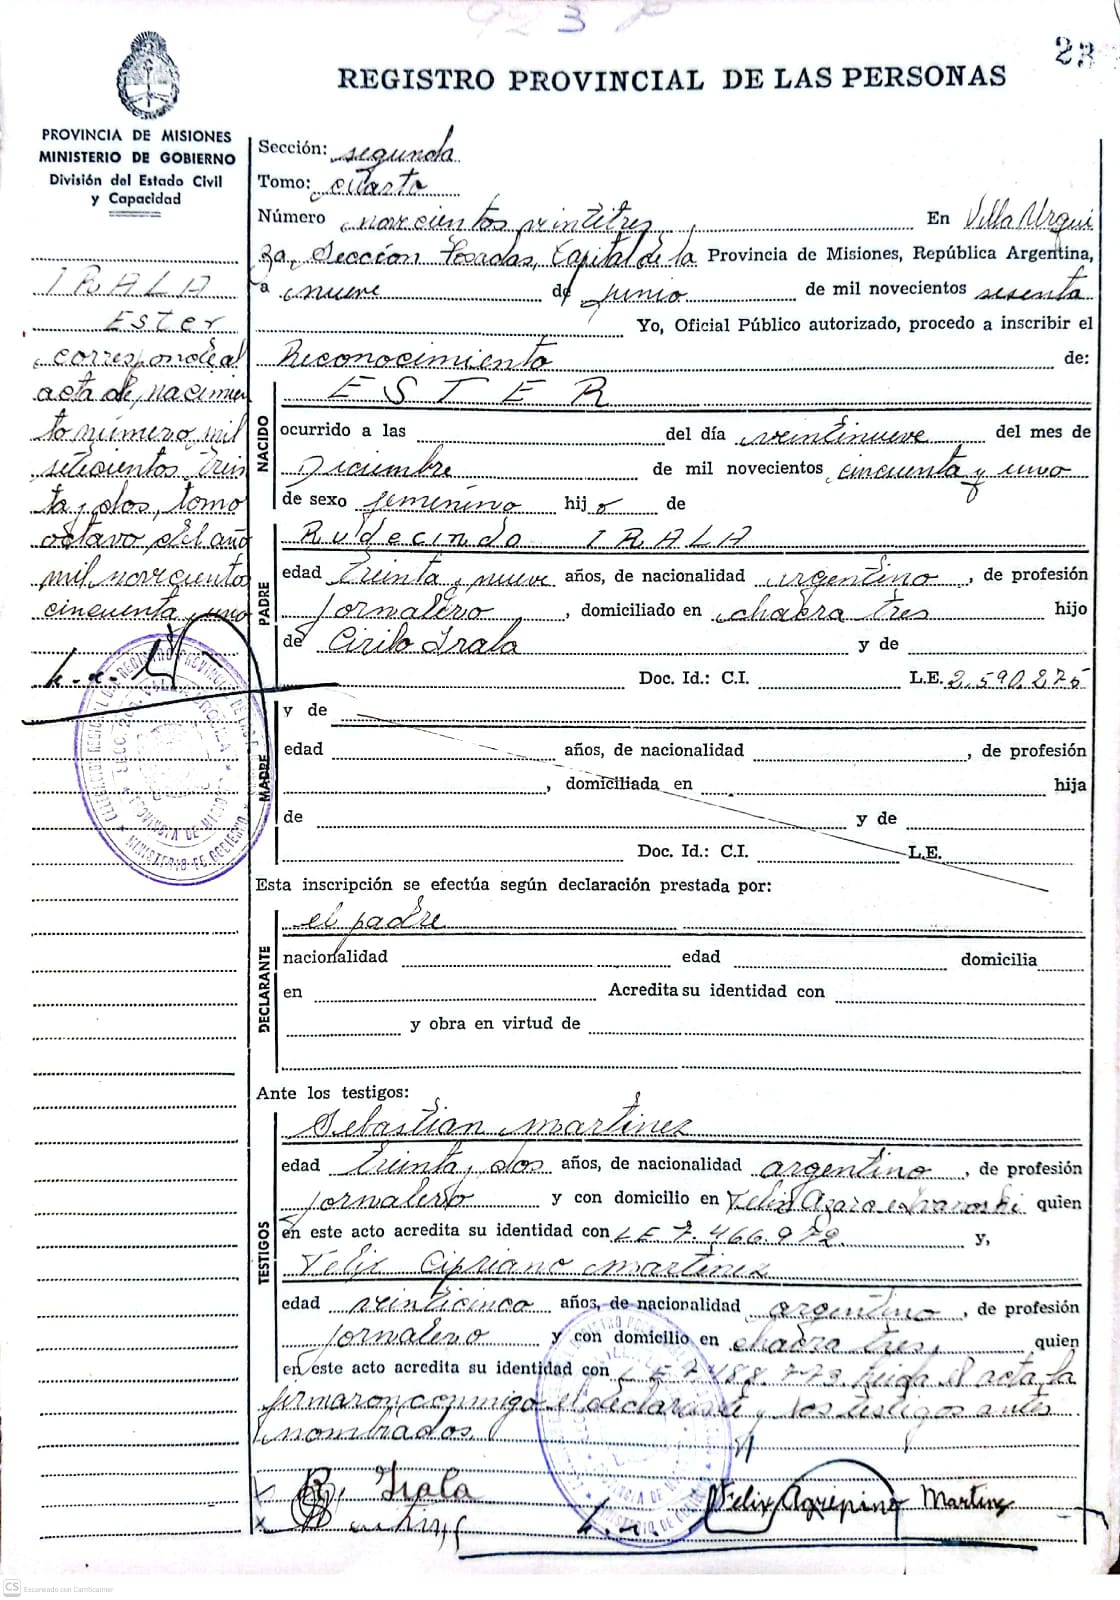 923
23
REGISTRO PROVINCIAL DE LAS PERSONAS
PROVINCIA DE MISIONES
MINISTERIO DE GOBIERNO
División del Estado Civil
y Capacidad
IRALA
Ester
corresponde al
acta de nacimien
to número mil
setecientos trein
ta y dos, tomo
octavo del año
mil novecientos
cincuenta y uno
Sección: segunda
Tomo: cuarto
Número novecientos veintitres En Villa Urqui
za, Sección Posadas, Capital de la Provincia de Misiones, República Argentina,
a nueve de junio de mil novecientos sesenta
Yo, Oficial Público autorizado, procedo a inscribir el
Reconocimiento de:
NACIDO
ESTER
ocurrido a las del día veintinueve del mes de
Diciembre de mil novecientos cincuenta y uno
de sexo femenino hij a de
PADRE
Rudecindo IRALA
edad treinta y nueve años, de nacionalidad argentino, de profesión
jornalero, domiciliado en chacra tres hijo
de Cirilo Irala y de
Doc. Id.: C.I. L.E. 2.590.275
MADRE
y de
edad años, de nacionalidad , de profesión
, domiciliada en hija
de y de
Doc. Id.: C.I. L.E.
Esta inscripción se efectúa según declaración prestada por:
DECLARANTE
el padre
nacionalidad edad domicilia
en Acredita su identidad con
y obra en virtud de
Ante los testigos:
TESTIGOS
Sebastian Martinez
edad treinta y dos años, de nacionalidad argentino, de profesión
jornalero y con domicilio en Felix Azara quien
en este acto acredita su identidad con LE 7.466.972 y,
Felix Cipriano Martinez
edad veinticinco años, de nacionalidad argentino, de profesión
jornalero y con domicilio en chacra tres, quien
en este acto acredita su identidad con LE 7488.779. Leida el acta la
firmaron conmigo el declarante y los testigos antes
nombrados.
R. Irala
Felix Agrepino Martinez
CS Escaneado con CamScanner